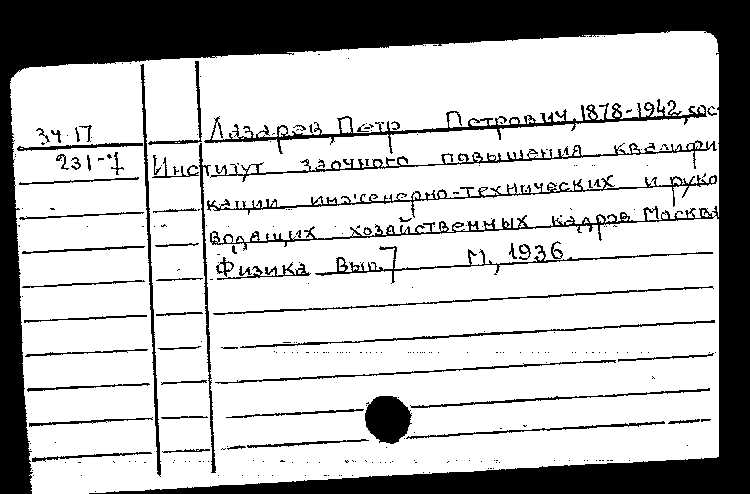 34 П
Лазарев, Петр Петрович, 1878-1942, сос-
231-7
Институт заочного повышения квалифи
кации инженерно-технических и руко
водящих хозяйственных кадров Москва
Физика Вып. 7 М., 1936.